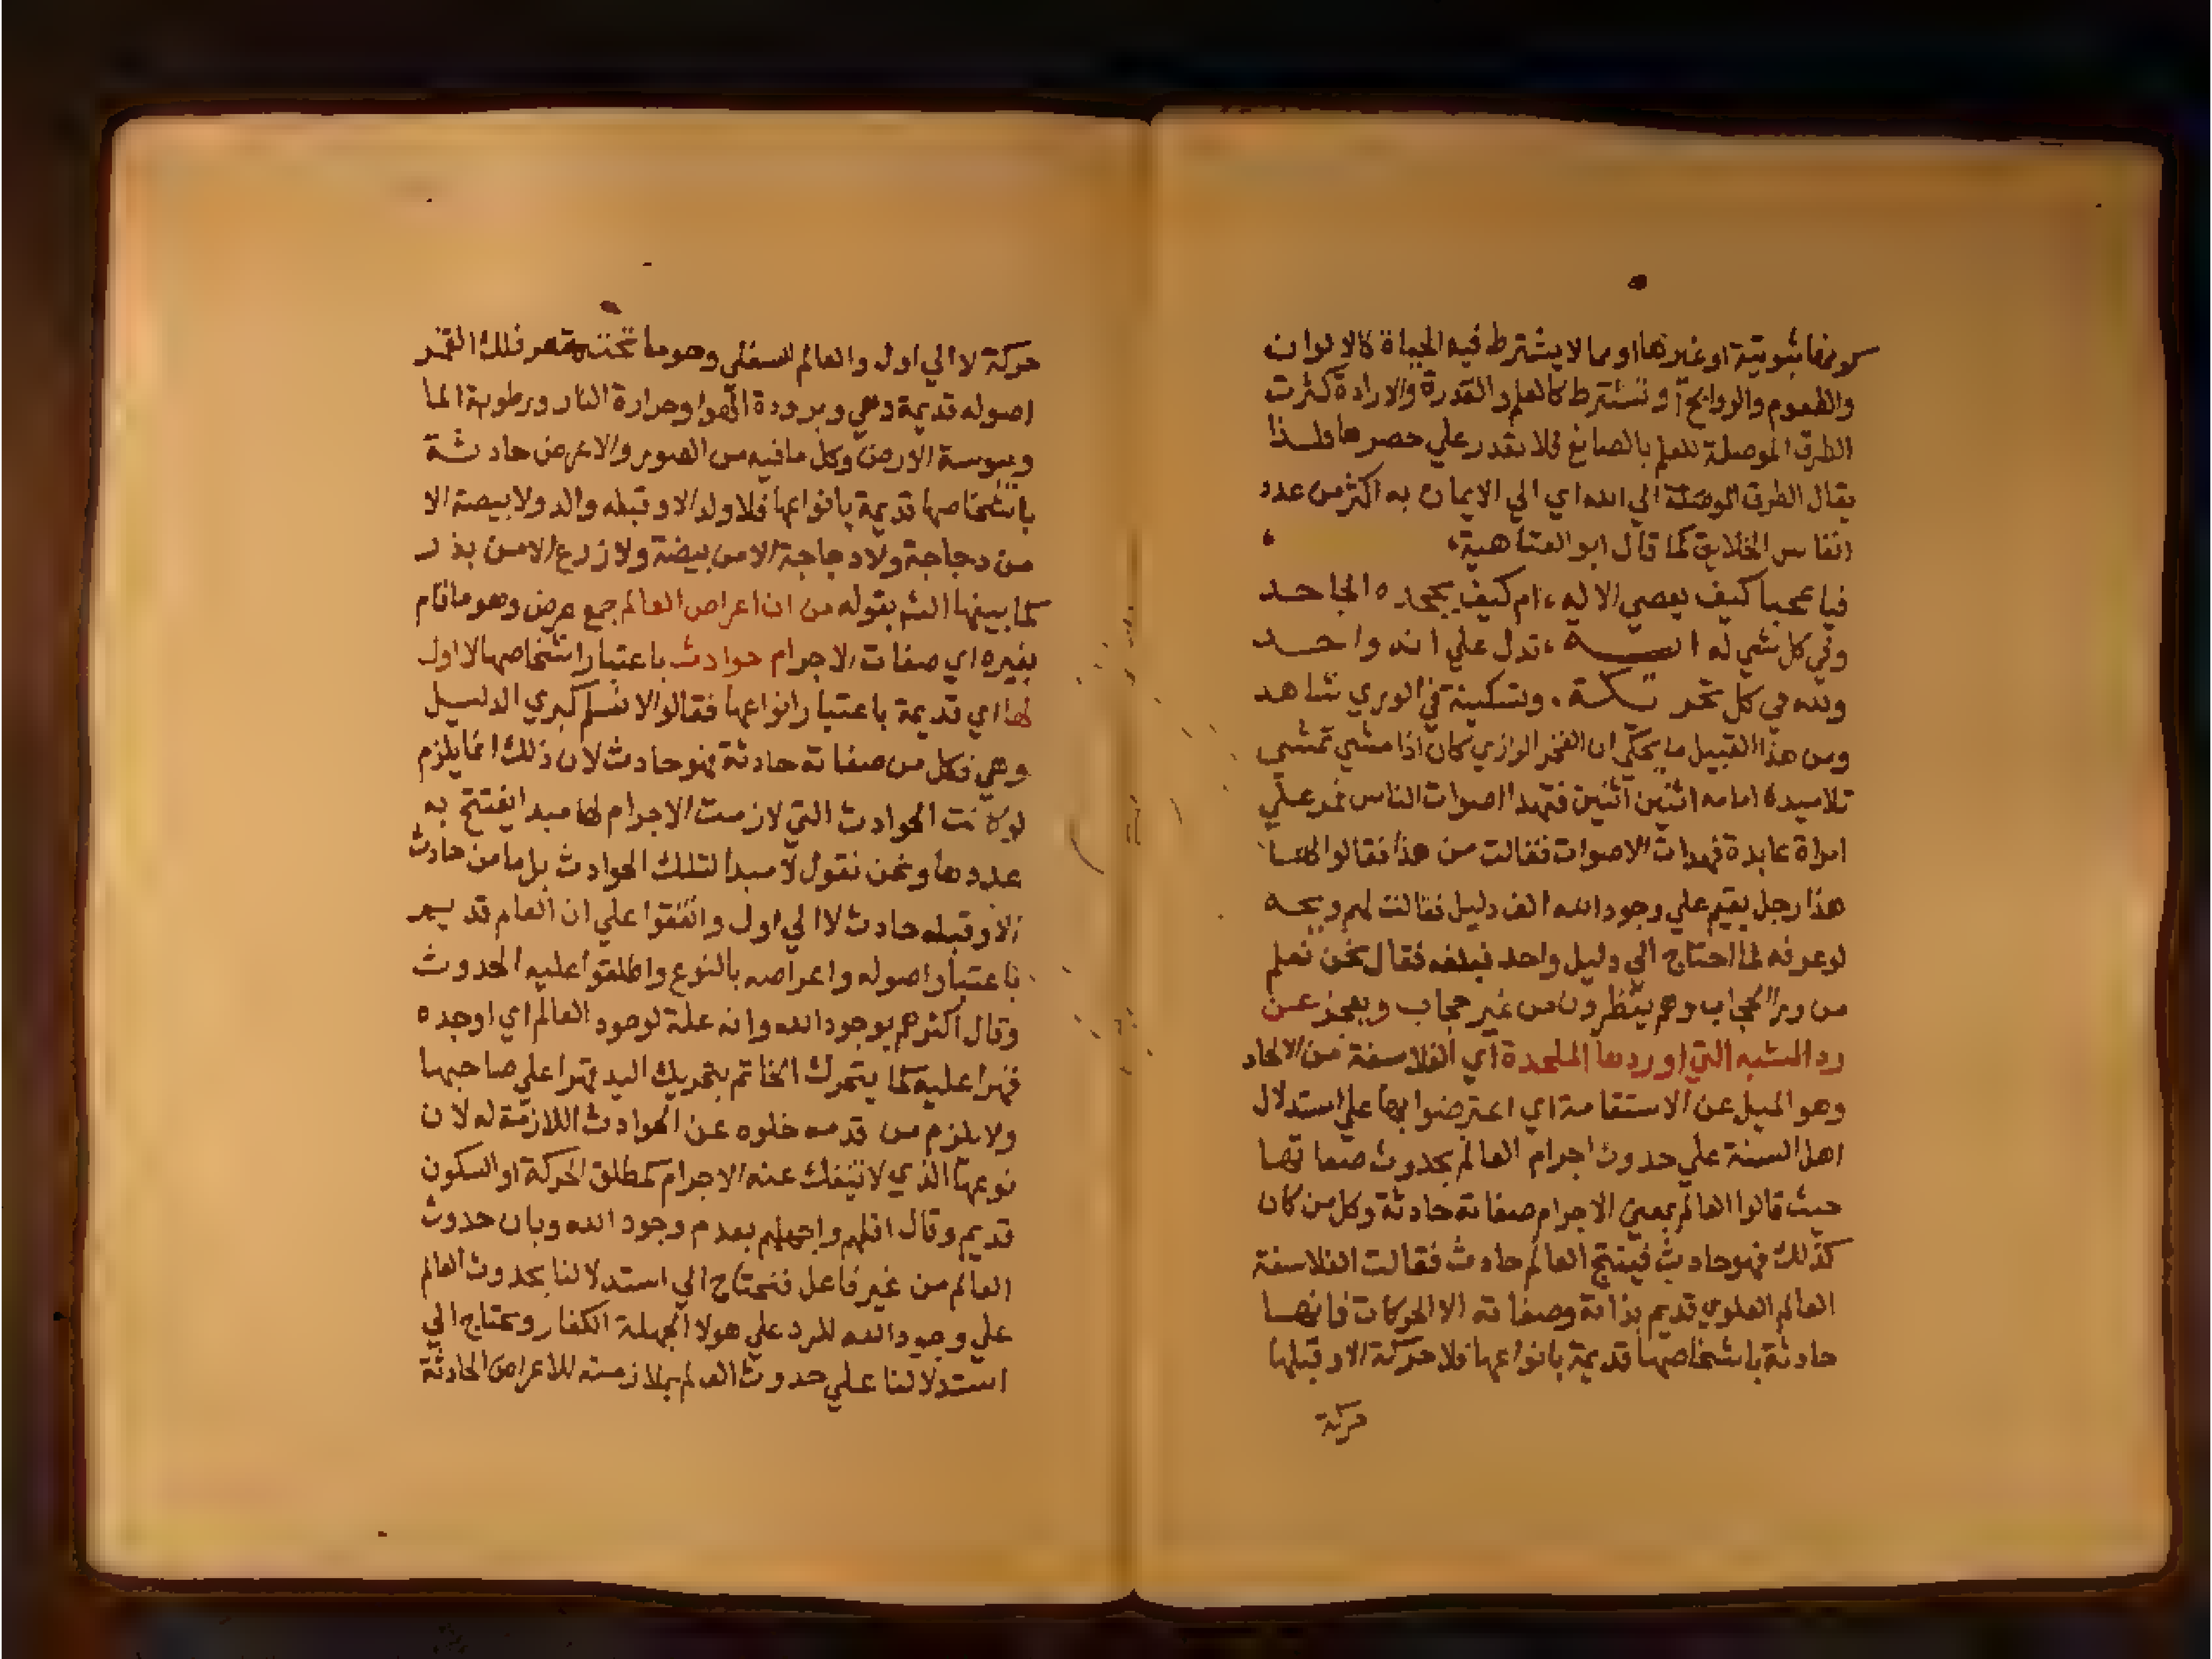 كونها ثبوتية او غيرها او مما لا يشترط فيه الحياة كالالوان
والطعوم والروايح او تشترط كالعلم والقدرة والارادة كثرت
الطرق الموصلة للعلم بالصانع فلا نقدر علي حصرها ولذا
يقال الطرق الموصلة الي الله اي الي الايمان به اكثر من عدد
انفاس الخلايق كما قال ابو العتاهية
فيا عجبا كيف يعصي الاله ، ام كيف يجحده الجاحد
وفي كل شي له ايـــة ، تدل علي انه واحد
ولله في كل تحريكة ، وتسكينة في الوري شاهد
ومن هذا القبيل ما يحكي ان الفخر الرازي كان اذا مشي تمشي
تلاميذه امامه اثنين اثنين فتهدا اصوات الناس فمر علي
امراة عابدة فهدات الاصوات فقالت من هذا فقالوا لها
هذا رجل يقيم علي وجود الله الف دليل فقالت لهم ويحه
لو عرفه لما احتاج الي دليل واحد فبلغه فقال نحن نعلم
من ورا الحجاب وهم ينظرون من غير حجاب ويعجز عن
رد الشبه التي اوردها الملحدة اي الفلاسفة من الالحاد
وهو الميل عن الاستقامة اي اعترضوا بها علي استدلال
اهل السنة علي حدوث اجرام العالم بحدوث صفاتها
حيث قالوا العالم بمعني الاجرام صفاته حادثة وكل من كان
كذلك فهو حادث فينتج العالم حادث فقالت الفلاسفة
العالم العلوي قديم بذاته وصفاته الا الحركات فانها
حادثة باشخاصها قديمة بانواعها فلا حركة الا وقبلها
حركة
حركة لا الي اول والعالم السفلي وهو ما تحت مقعر فلك القمر
اصوله قديمة وهي وبرودة الهوا وحرارة النار ورطوبة الما
ويبوسة الارض وكل ما فيه من الصور والاعرض حادثة
باشخاصها قديمة بانواعها فلا ولد الا وقبله والد ولا بيضة الا
من دجاجة ولا دجاجة الا من بيضة ولا زرع الا من بذر
كما بينها الشم بقوله من ان اعراض العالم جمع عرض وهو ما قام
بغيره اي صفات الاجرام حوادث باعتبار اشخاصها لا اول
لها اي قديمة باعتبار انواعها فقالوا لا نسلم كبري الدليل
وهي فكل من صفاته حادثة فهو حادث لان ذلك انما يلزم
لو كانت الحوادث التي لازمت الاجرام لها مبدا يفتتح به
عددها ونحن نقول لا مبدا لتلك الحوادث بل ما من حادث
الا وقبله حادث لا الي اول واتفقوا علي ان العالم قديم
باعتبار اصوله واعراضه بالنوع واطلقوا عليه الحدوث
وقال اكثرهم بوجود الله وانه علة لوجود العالم اي اوجده
قهرا عليه كما يتحرك الخاتم بتحريك اليد قهرا علي صاحبها
ولا يلزم من قدمه خلوه عن الحوادث اللازمة له لان
نوعها الذي لا تنفك عنه الاجرام كمطلق الحركة او السكون
قديم وقال اقلهم واجهلهم بعدم وجود الله وبان حدوث
العالم من غير فاعل فنحتاج الي استدلالنا بحدوث العالم
علي وجود الله للرد علي هولا الجهلة الكفار ونحتاج الي
استدلالنا علي حدوث العالم بملازمته للاعراض الحادثة